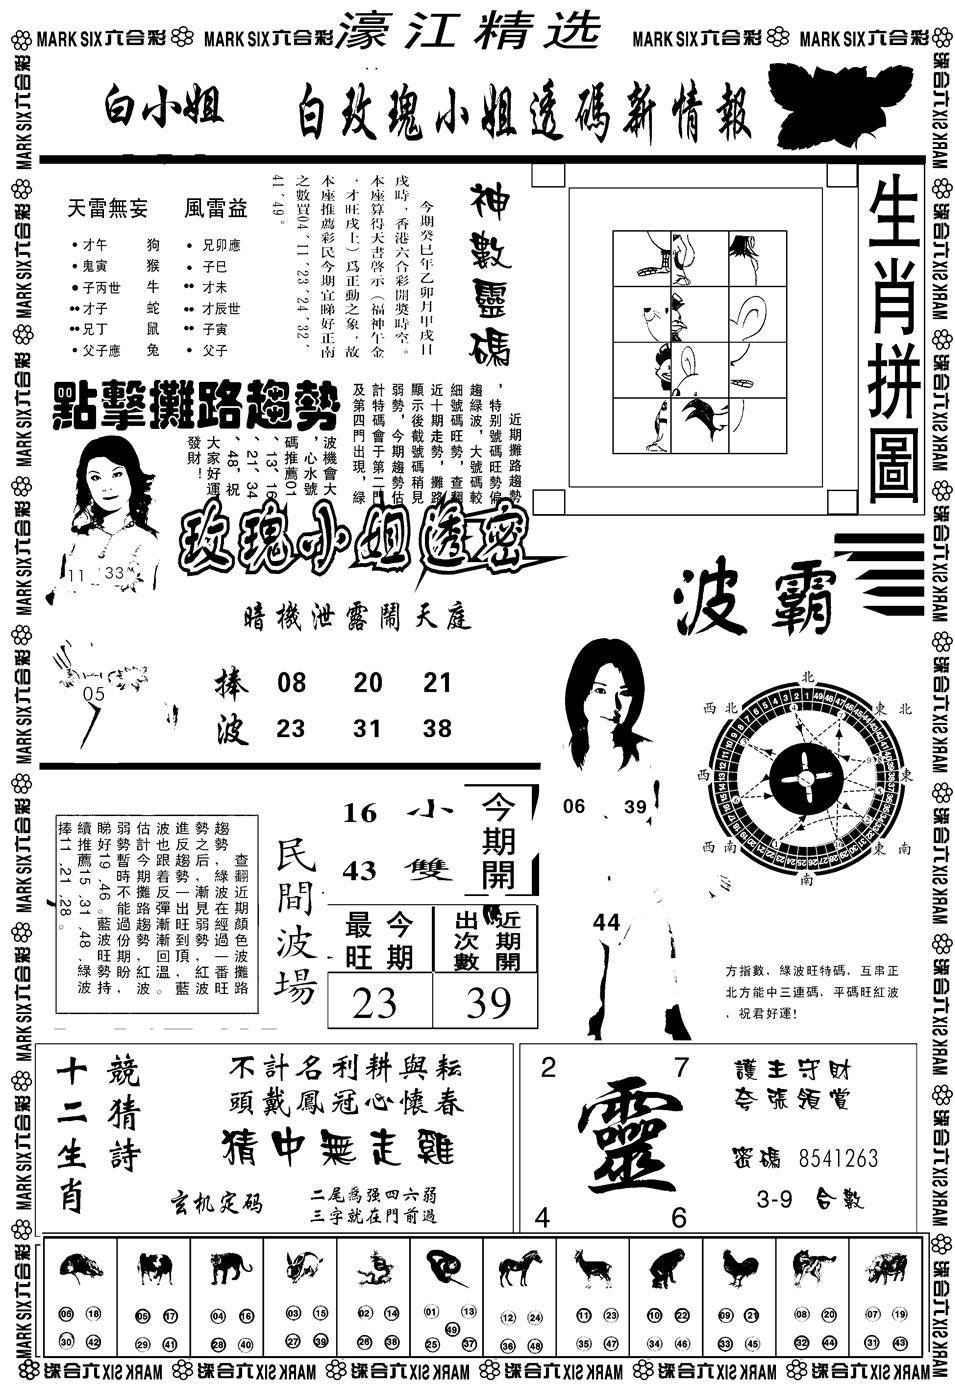 MARK SIX六合彩 MARK SIX六合彩 濠江精选 MARK SIX六合彩 MARK SIX六合彩
白小姐 白玫瑰小姐透碼新情報
天雷無妄 風雷益
• 才午 狗 • 兄卯應
• 鬼寅 猴 • 子巳
• 子丙世 牛 •• 才未
•• 才子 蛇 •• 才辰世
•• 兄丁 鼠 •• 子寅
• 父子應 兔 • 父子
神數靈碼
今期癸巳年乙卯月甲戌日
戌時，香港六合彩開獎時空。
本座算得天書啓示（福神午金
，才旺戌土）爲正動之象，故
本座推薦彩民今期宜睇好正南
之數買04、11、23、24、32、
41、49。
生肖拼圖
點擊攤路趨勢
近期攤路趨勢
，特别號碼旺勢偏
趨綠波，大號碼較
細號碼旺勢，查翻
近十期走勢，攤路
顯示後截號碼稍見
弱勢，今期趨勢估
計特碼會于第二門
及第四門出現，綠
波機會大
，心水號
碼推薦01
、13、16
、21、34
、48，祝
大家好運
發財！
11 33
05
玫瑰小姐透密
暗機泄露鬧天庭
捧波
08 20 21
23 31 38
波霸
06 39
44
北
西北 東北
西 東
西南 東南
南
方指數，綠波旺特碼，互串正
北方能中三連碼，平碼旺紅波
，祝君好運！
查翻近期顏色波攤路
趨勢，綠波在經過一番旺
勢之后，漸見弱勢，紅波
進反趨勢一出旺到頂，藍
波也跟着反彈漸漸回溫。
估計今期攤路趨勢紅波
弱勢暫時不能過份期盼，
睇好19、46。藍波旺勢持
續推薦15、31、48、綠波
捧11、21、28。
民間波場
16 小
43 雙
今期開
今期最旺
近期開出次數
23 39
競猜詩
十二生肖
不計名利耕與耘
頭戴鳳冠心懷春
猜中無走雞
玄机定码
二尾爲强四六弱
三字就在門前過
2 7
靈
4 6
護主守財
夸張領賞
密碼 8541263
3-9 合數
06 18 05 17 04 16 03 15 02 14 01 13 12 24 11 23 10 22 09 21 08 20 07 19
49
30 42 29 41 28 40 27 39 26 38 25 37 36 48 35 47 34 46 33 45 32 44 31 43
MARK SIX六合彩 MARK SIX六合彩 MARK SIX六合彩 MARK SIX六合彩 MARK SIX六合彩 MARK SIX六合彩